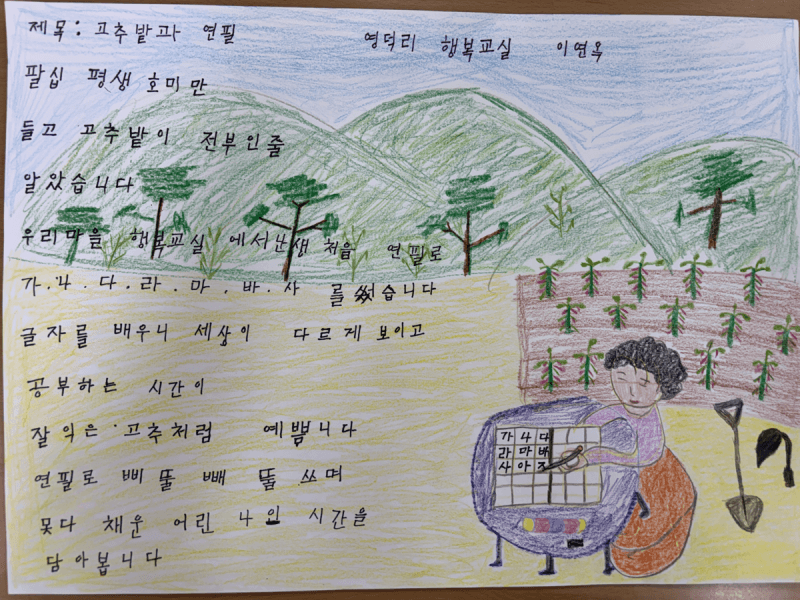 제목: 고추밭과 연필
영덕리 행복교실 이연옥
팔십 평생 호미만
들고 고추밭이 전부인줄
알았습니다
우리마을 행복교실 에서난생 처음 연필로
가.나.다.라.마.바.사 를 썼습니다
글자를 배우니 세상이 다르게 보이고
공부하는 시간이
잘익은 고추처럼 예쁩니다
연필로 삐뚤 빼뚤 쓰며
못다 채운 어린 나의 시간을
담아봅니다
가 나 다
라 마 바
사 아 자